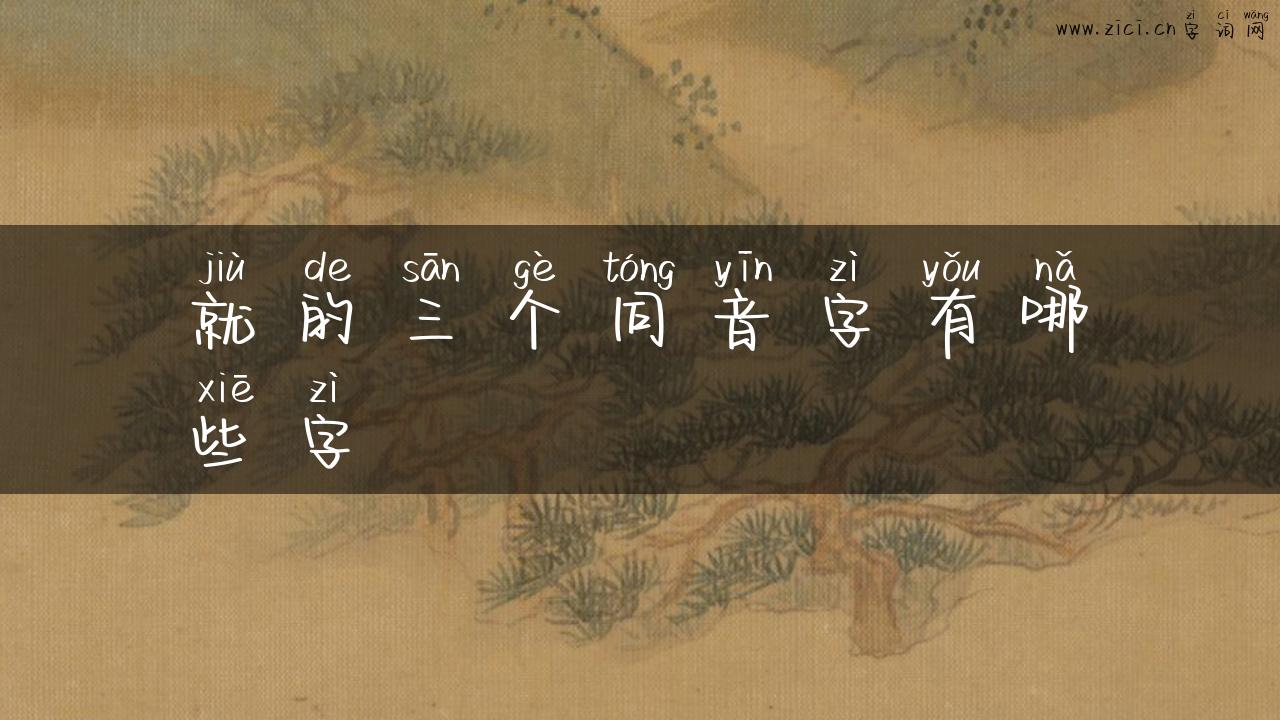 zì cí wǎng
www.zici.cn 字词网
jiù de sān gè tóng yīn zì yǒu nǎ
就的三个同音字有哪
xiē zì
些字